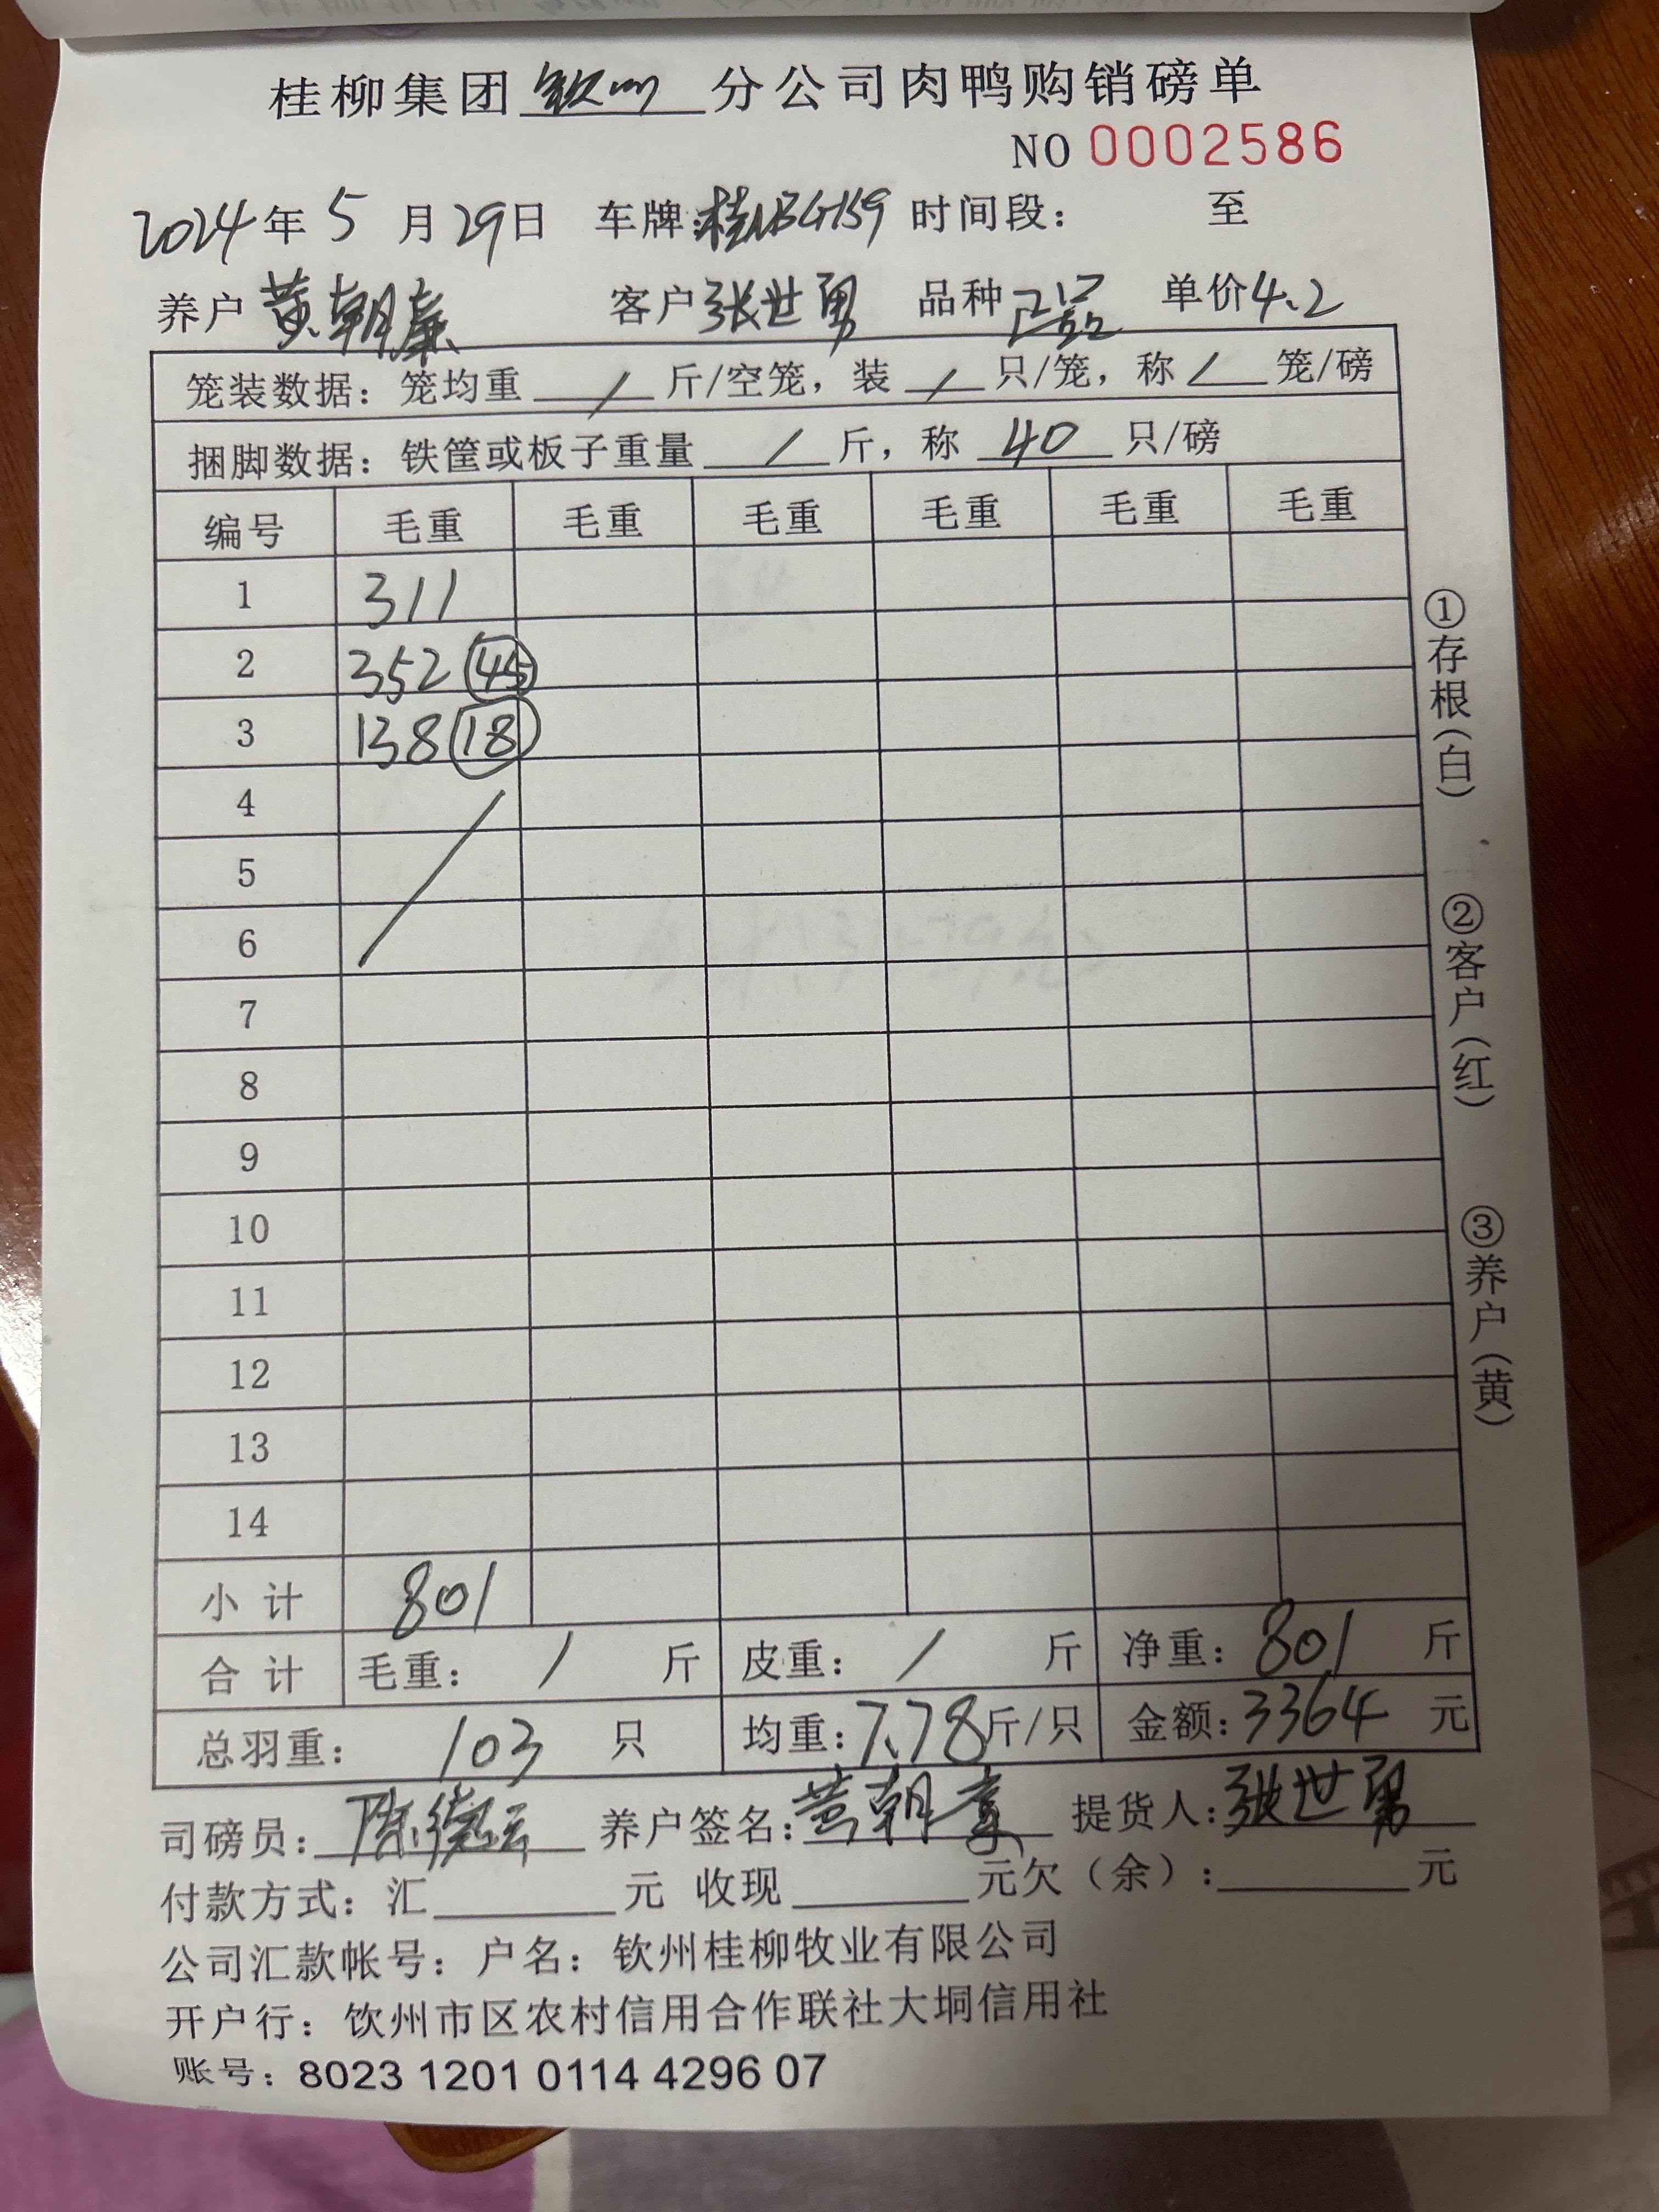 桂柳集团 钦州 分公司肉鸭购销磅单
NO 0002586
2024年 5 月 29日 车牌: 时间段: 至
养户 黄朝 客户 张世勇 品种 单价4.2
笼装数据: 笼均重 / 斤/空笼, 装 / 只/笼, 称 / 笼/磅
捆脚数据: 铁筐或板子重量 / 斤, 称 40 只/磅
编号 毛重 毛重 毛重 毛重 毛重 毛重
1 311
2 352 45
3 138 18
4
5
6
7
8
9
10
11
12
13
14
小 计 801
合 计 毛重: / 斤 皮重: / 斤 净重: 801 斤
总羽重: 103 只 均重: 7.78斤/只 金额: 3364 元
司磅员: 陈德云 养户签名: 黄朝 提货人: 张世勇
付款方式: 汇 元 收现 元欠(余): 元
公司汇款帐号: 户名: 钦州桂柳牧业有限公司
开户行: 钦州市区农村信用合作联社大垌信用社
账号: 8023 1201 0114 4296 07
①存根(白)
②客户(红)
③养户(黄)